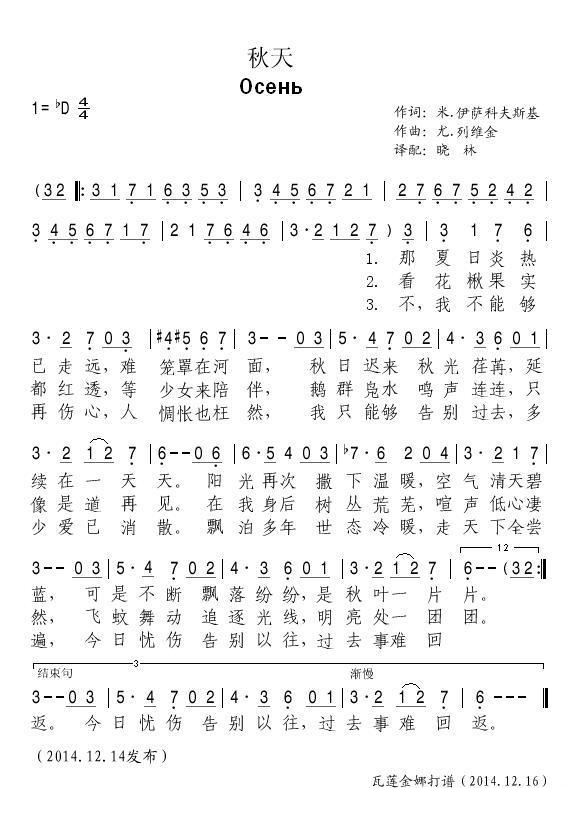 秋天
Осень
1= ♭D 4/4
作词: 米.伊萨科夫斯基
作曲: 尤.列维金
译配: 晓 林
(3 2 ‖: 3 1 7 1 6 3 5 3 | 3 4 5 6 7 2 1 | 2 7 6 7 5 2 4 2 |
3 4 5 6 7 1 7 | 2 1 7 6 4 6 | 3 · 2 1 2 7 ) 3 | 3 1 7 6
1. 那 夏 日 炎 热
2. 看 花 楸 果 实
3. 不, 我 不 能 够
3 · 2 7 0 3 | #4 #5 6 7 | 3 - - 0 3 | 5 · 4 7 0 2 | 4 · 3 6 0 1 |
已 走 远, 难 笼 罩 在 河 面, 秋 日 迟 来 秋 光 荏 苒, 延
都 红 透, 等 少 女 来 陪 伴, 鹅 群 凫 水 鸣 声 连 连, 只
再 伤 心, 人 惆 怅 也 枉 然, 我 只 能 够 告 别 过 去, 多
3 · 2 1 2 7 | 6 - - 0 6 | 6 · 5 4 0 3 | ♭7 · 6 2 0 4 | 3 · 2 1 7 |
续 在 一 天 天。 阳 光 再 次 撒 下 温 暖, 空 气 清 天 碧
像 是 道 再 见。 在 我 身 后 树 丛 荒 芜, 喧 声 低 心 凄
少 爱 已 消 散。 飘 泊 多 年 世 态 冷 暖, 走 天 下 全 尝
12
3 - - 0 3 | 5 · 4 7 0 2 | 4 · 3 6 0 1 | 3 · 2 1 2 7 | 6 - - (3 2 :‖
蓝, 可 是 不 断 飘 落 纷 纷, 是 秋 叶 一 片 片。
然, 飞 蚊 舞 动 追 逐 光 线, 明 亮 处 一 团 团。
遍, 今 日 忧 伤 告 别 以 往, 过 去 事 难 回
结束句 3 渐慢
3 - - 0 3 | 5 · 4 7 0 2 | 4 · 3 6 0 1 | 3 · 2 1 2 7 | 6 - - - ‖
返。 今 日 忧 伤 告 别 以 往, 过 去 事 难 回 返。
(2014.12.14发布)
瓦莲金娜打谱(2014.12.16)